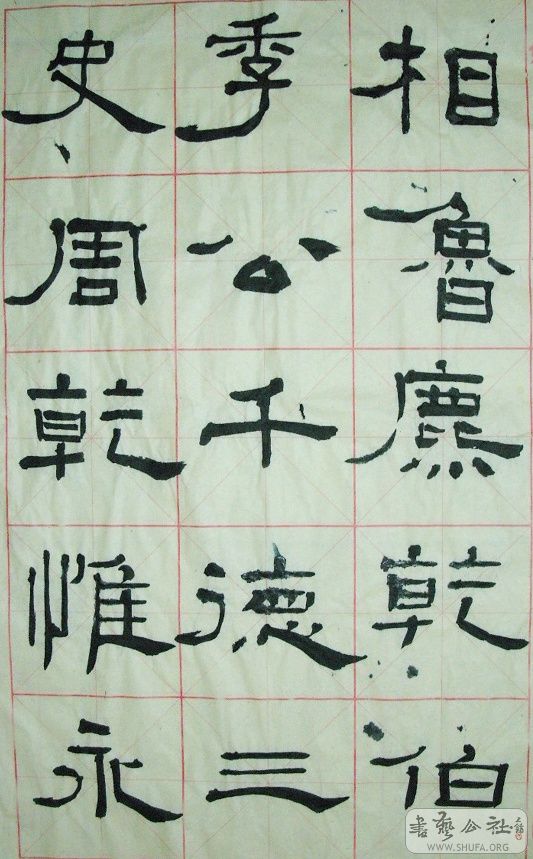 相魯麃乾伯
季公千德三
史周乾惟永
書藝公社
WWW.SHUFA.ORG